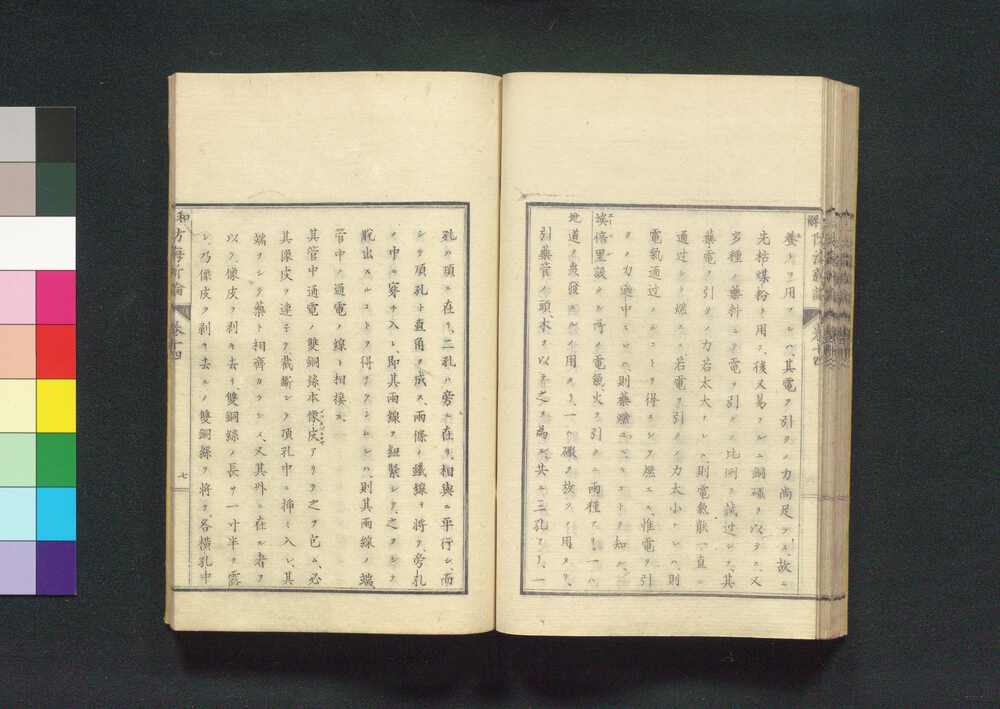 養ヲ用フルハ、其電ヲ引クノ力尚足ラス、故ニ
先枯煤粉ヲ用ヒ、後又易フルニ銅礦ヲ以テス、又
多種ノ藥料ニテ電ヲ引クノ比例ヲ試過シ、其
藥電ヲ引クノ力若太大ナレハ、則電氣能一直ニ
通過シテ燃エス、若電ヲ引クノ力太小ナレハ、則
電氣通過スルコトヲ得スシテ燃エス、惟電ヲ引
クノ力適中スレハ、則藥燃ユルコトヲ知ル、
埃倍里設クル所ノ電氣火ヲ引クニ兩種アリ、一ハ
地道ノ轟發ニ用ヒ、一ハ礮ヲ放ツニ用フ、
引藥管ノ頭、木ヲ以テ之ヲ為ル、共ニ三孔アリ、一
孔ハ頂ニ在リ、二孔ハ旁ニ在リ、相與ニ平行シ、而
シテ頂孔ト直角ヲ成ス、兩條ノ鐵線ヲ將テ、旁孔
ノ中ニ穿チ入レ、即其兩線ヲ紐緊シテ、之ヲシテ
脫出スルコトヲ得サラシムレハ、則其兩線ノ端、
管中ノ通電ノ線ト相接ス、
其管中通電ノ雙銅線、本像皮アリテ之ヲ包ム、必
其像皮ヲ連子テ截斷シテ頂孔中ニ挿ミ入レ、其
端ヲシテ藥ト相齊カラシム、又其外ニ在ル者ヲ
以テ像皮ヲ剥キ去リ、雙銅線ノ長サ一寸半ヲ露
シ、乃像皮ヲ剥キ去ルノ雙銅線ヲ將テ、各橫孔中
卷十四
七